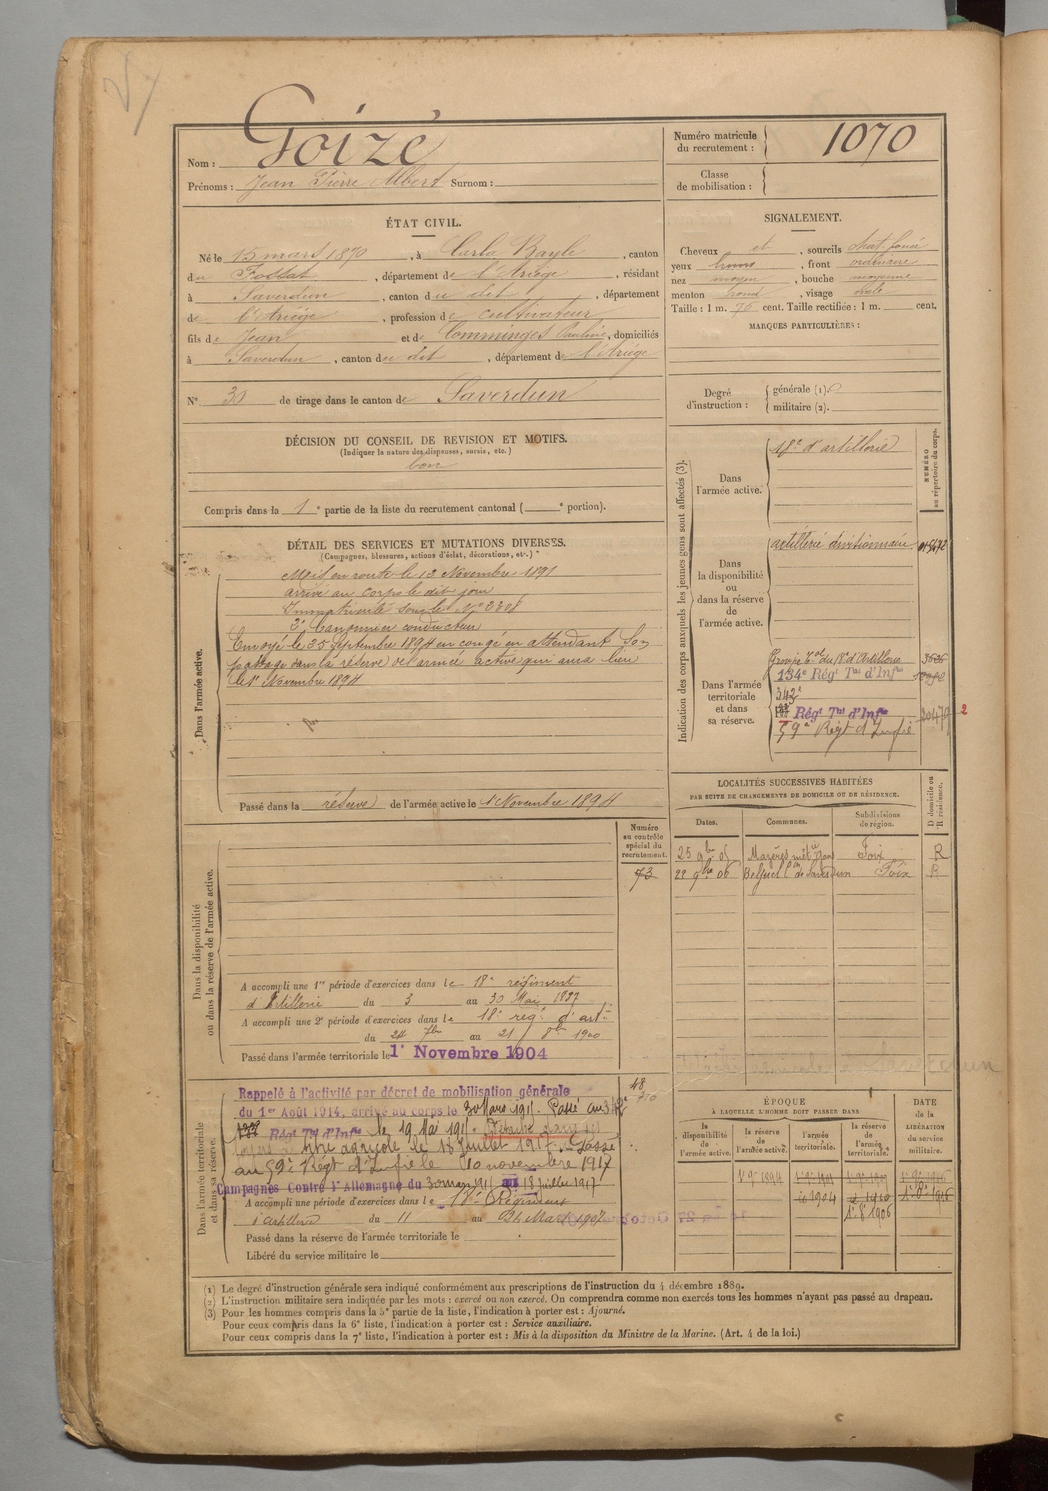 Nom : Goizé
Prénoms : Jean Pierre Albert Surnom :
Numéro matricule du recrutement : 1070
Classe de mobilisation :
ÉTAT CIVIL.
Né le 15 mars 1870, à Carla Bayle, canton
du Fossat, département de l'Ariège, résidant
à Saverdun, canton du dit, département
de l'Ariège, profession de cultivateur
fils de Jean et de Comminges Pauline, domiciliés
à Saverdun, canton du dit, département de l'Ariège
N° 30 de tirage dans le canton de Saverdun
SIGNALEMENT.
Cheveux et, sourcils chat. foncé
yeux bruns, front ordinaire
nez moyen, bouche moyenne
menton rond, visage ovale
Taille : 1 m. 76 cent. Taille rectifiée : 1 m. cent.
MARQUES PARTICULIÈRES :
Degré d'instruction :
générale (1).
militaire (2).
DÉCISION DU CONSEIL DE REVISION ET MOTIFS.
(Indiquer la nature des dispenses, sursis, etc.)
bon
Compris dans la 1e partie de la liste du recrutement cantonal ( e portion).
DÉTAIL DES SERVICES ET MUTATIONS DIVERSES.
(Campagnes, blessures, actions d'éclat, décorations, etc.)
Dans l'armée active.
Mis en route le 13 Novembre 1891
arrivé au corps le dit jour
Immatriculé sous le N°
2e Canonnier conducteur
Envoyé le 25 Septembre 1894 en congé en attendant son
passage dans la réserve de l'armée active qui aura lieu
le 1er Novembre 1894
Passé dans la réserve de l'armée active le 1er Novembre 1894
Indication des corps auxquels les jeunes gens sont affectés (3).
NUMÉRO au répertoire du corps.
Dans l'armée active.
18e d'artillerie
Dans la disponibilité ou dans la réserve de l'armée active.
artillerie divisionnaire
Dans l'armée territoriale et dans sa réserve.
Groupe Tal du 18e d'Artillerie
134e Régt Tal d'Infie
342e
Régt Tal d'Infie
59e Régt d'Infie
LOCALITÉS SUCCESSIVES HABITÉES
PAR SUITE DE CHANGEMENTS DE DOMICILE OU DE RÉSIDENCE.
Dates. Communes. Subdivisions de région. D domicile ou R résidence.
25 9bre 05 Mazères Foix R
22 9bre 06 Saverdun Foix R
Numéro au contrôle spécial du recrutement.
73
Dans la disponibilité ou dans la réserve de l'armée active.
A accompli une 1re période d'exercices dans le 18e régiment
d'Artillerie du 3 au 30 Mai 1897
A accompli une 2e période d'exercices dans le 18e rég. d'art.
du 24 7bre au 21 8bre 1900
Passé dans l'armée territoriale le 1er Novembre 1904
Dans l'armée territoriale et dans sa réserve.
Rappelé à l'activité par décret de mobilisation générale
du 1er Août 1914, arrivé au corps le 30 Mars 1915. Passé au 342e
Régt Tal d'Infie le 19 Mai 1915.
agricole le 18 Juillet 1917. Passé
au 59e Régt d'Infie le 10 novembre 1917
Campagnes Contre l'Allemagne du 30 mars 1915 au 18 Juillet 1917
A accompli une période d'exercices dans le 18e Régiment
d'Artillerie du 11 au 24 Mars 1907
Passé dans la réserve de l'armée territoriale le
Libéré du service militaire le
ÉPOQUE
À LAQUELLE L'HOMME DOIT PASSER DANS
la disponibilité de l'armée active. la réserve de l'armée active. l'armée territoriale. la réserve de l'armée territoriale.
DATE de la LIBÉRATION du service militaire.
(1) Le degré d'instruction générale sera indiqué conformément aux prescriptions de l'instruction du 4 décembre 1889.
(2) L'instruction militaire sera indiquée par les mots : exercé ou non exercé. On comprendra comme non exercés tous les hommes n'ayant pas passé au drapeau.
(3) Pour les hommes compris dans la 5e partie de la liste, l'indication à porter est : Ajourné.
Pour ceux compris dans la 6e liste, l'indication à porter est : Service auxiliaire.
Pour ceux compris dans la 7e liste, l'indication à porter est : Mis à la disposition du Ministre de la Marine. (Art. 4 de la loi.)